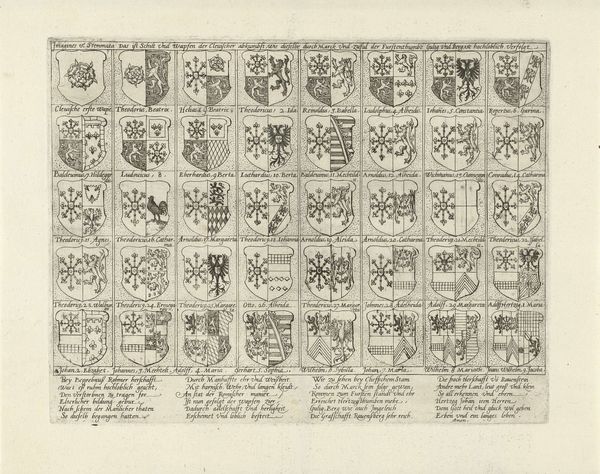 Imagines et Stemmata Das ist Schilt Und Wapfen der Clevischer abkunfft, wie dieselbe durch Marck Und Zufal der Furstenthumbt Gulig Und Berg ist hochloblich Verfolgt.
Clevische erste Wape. Theodorius, Beatrix Theodoricus 2. Ida Reinoldus, 3. Isabella Ludolphus, 4. Alheidis Iohanes, 5. Constantia Robertus, 6.
Balduinus, 7. Hildegge Ludovicus, 8. Eberhardus, 9. Berta Lothardus, 10. Berta Balduinus, 11. Mechtild Arnoldus, 12. Alheida Wichmanus, 13. Conradus, 14. Catharina
Theodoric9, 15. Agnes, Theodoric9, 16. Cathar. Arnoldus, 17. Margareta Theodoric9, 18. Iohanna Arnoldus, 19. Aleida Arnoldus, 20. Catharina Theodoric9, 21. Mechteild Theodoricus, 22. Isabel.
Theodoric9, 23. Theodoric9, 24. Theodoric9, 25. Margare. Otto, 26. Alheida. Theodoricus, 27. Margar. Iohannes, 28. Adolff, 29. Margareta Adolff Hertzog, 1. Maria
Johan, 2. Elizabet. Johannes, 3. Mechtelt Adolff, 4. Maria Gerhart, 5. Sophia. Wilhelm, 6. Sybilla Johan, 7. Maria Wilhelm, 8. Maria Joan Wilhelm, 9. Jacobe
Bey Begrebnuß Rohmer herschafft
Wart iß ruhm hochloblich geacht,
Den Verstorbnen zu tragen for
Elterlicher bildung gebur
Nach ihrem der Manlicher thaten
So dieselb begangen hatten
Durch Manhaffte ehr Und Weißheit
Mit harnisch Wehr, Und langen kleidt
An stat der Romischer manier
Ist nun gefolgt der Wapfen Zier
Dadurch adelschafft Und herligheit
Erscheinet Und loblich besteit
Wie zu sehen bey Clieffschem Stam
So durch Marck, ihm folge gewan
Kommen zum Fursten standt Und ehr
Erreichet Hertzogthumben mehr
Gulig, Berg wie auch Ingeleich
Die Graffschafft Ravensberg sehr reich
Die hoch Herschafft Vo Ravenstein
Andere mehr Land, leut groß Und klein
So all erkennen Und ehren
Hertzog Johan iren Herren
Dem Gott heil Und gluck wol geben
Erben Und ein langes leben